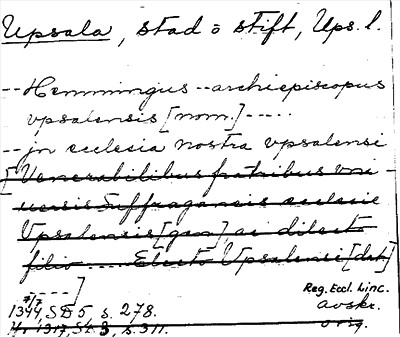 Upsala, stad o stift, Ups. l.
--Hemmingus--archiepiscopus
vpsalensis [nom.]-----
--jn ecclesia nostra vpsalensi--
[Venerabilibus fratribus vni-
uersis Suffraganeis ecclesie
Vpsalensis [gen.] ac dilecto
filio ..... Electo Vpsalensi [dat.]
-----]
Reg. Eccl. Linc.
7/7
1344, SD 5, s. 278. avskr.
1317, SD 3, s. 311. orig.